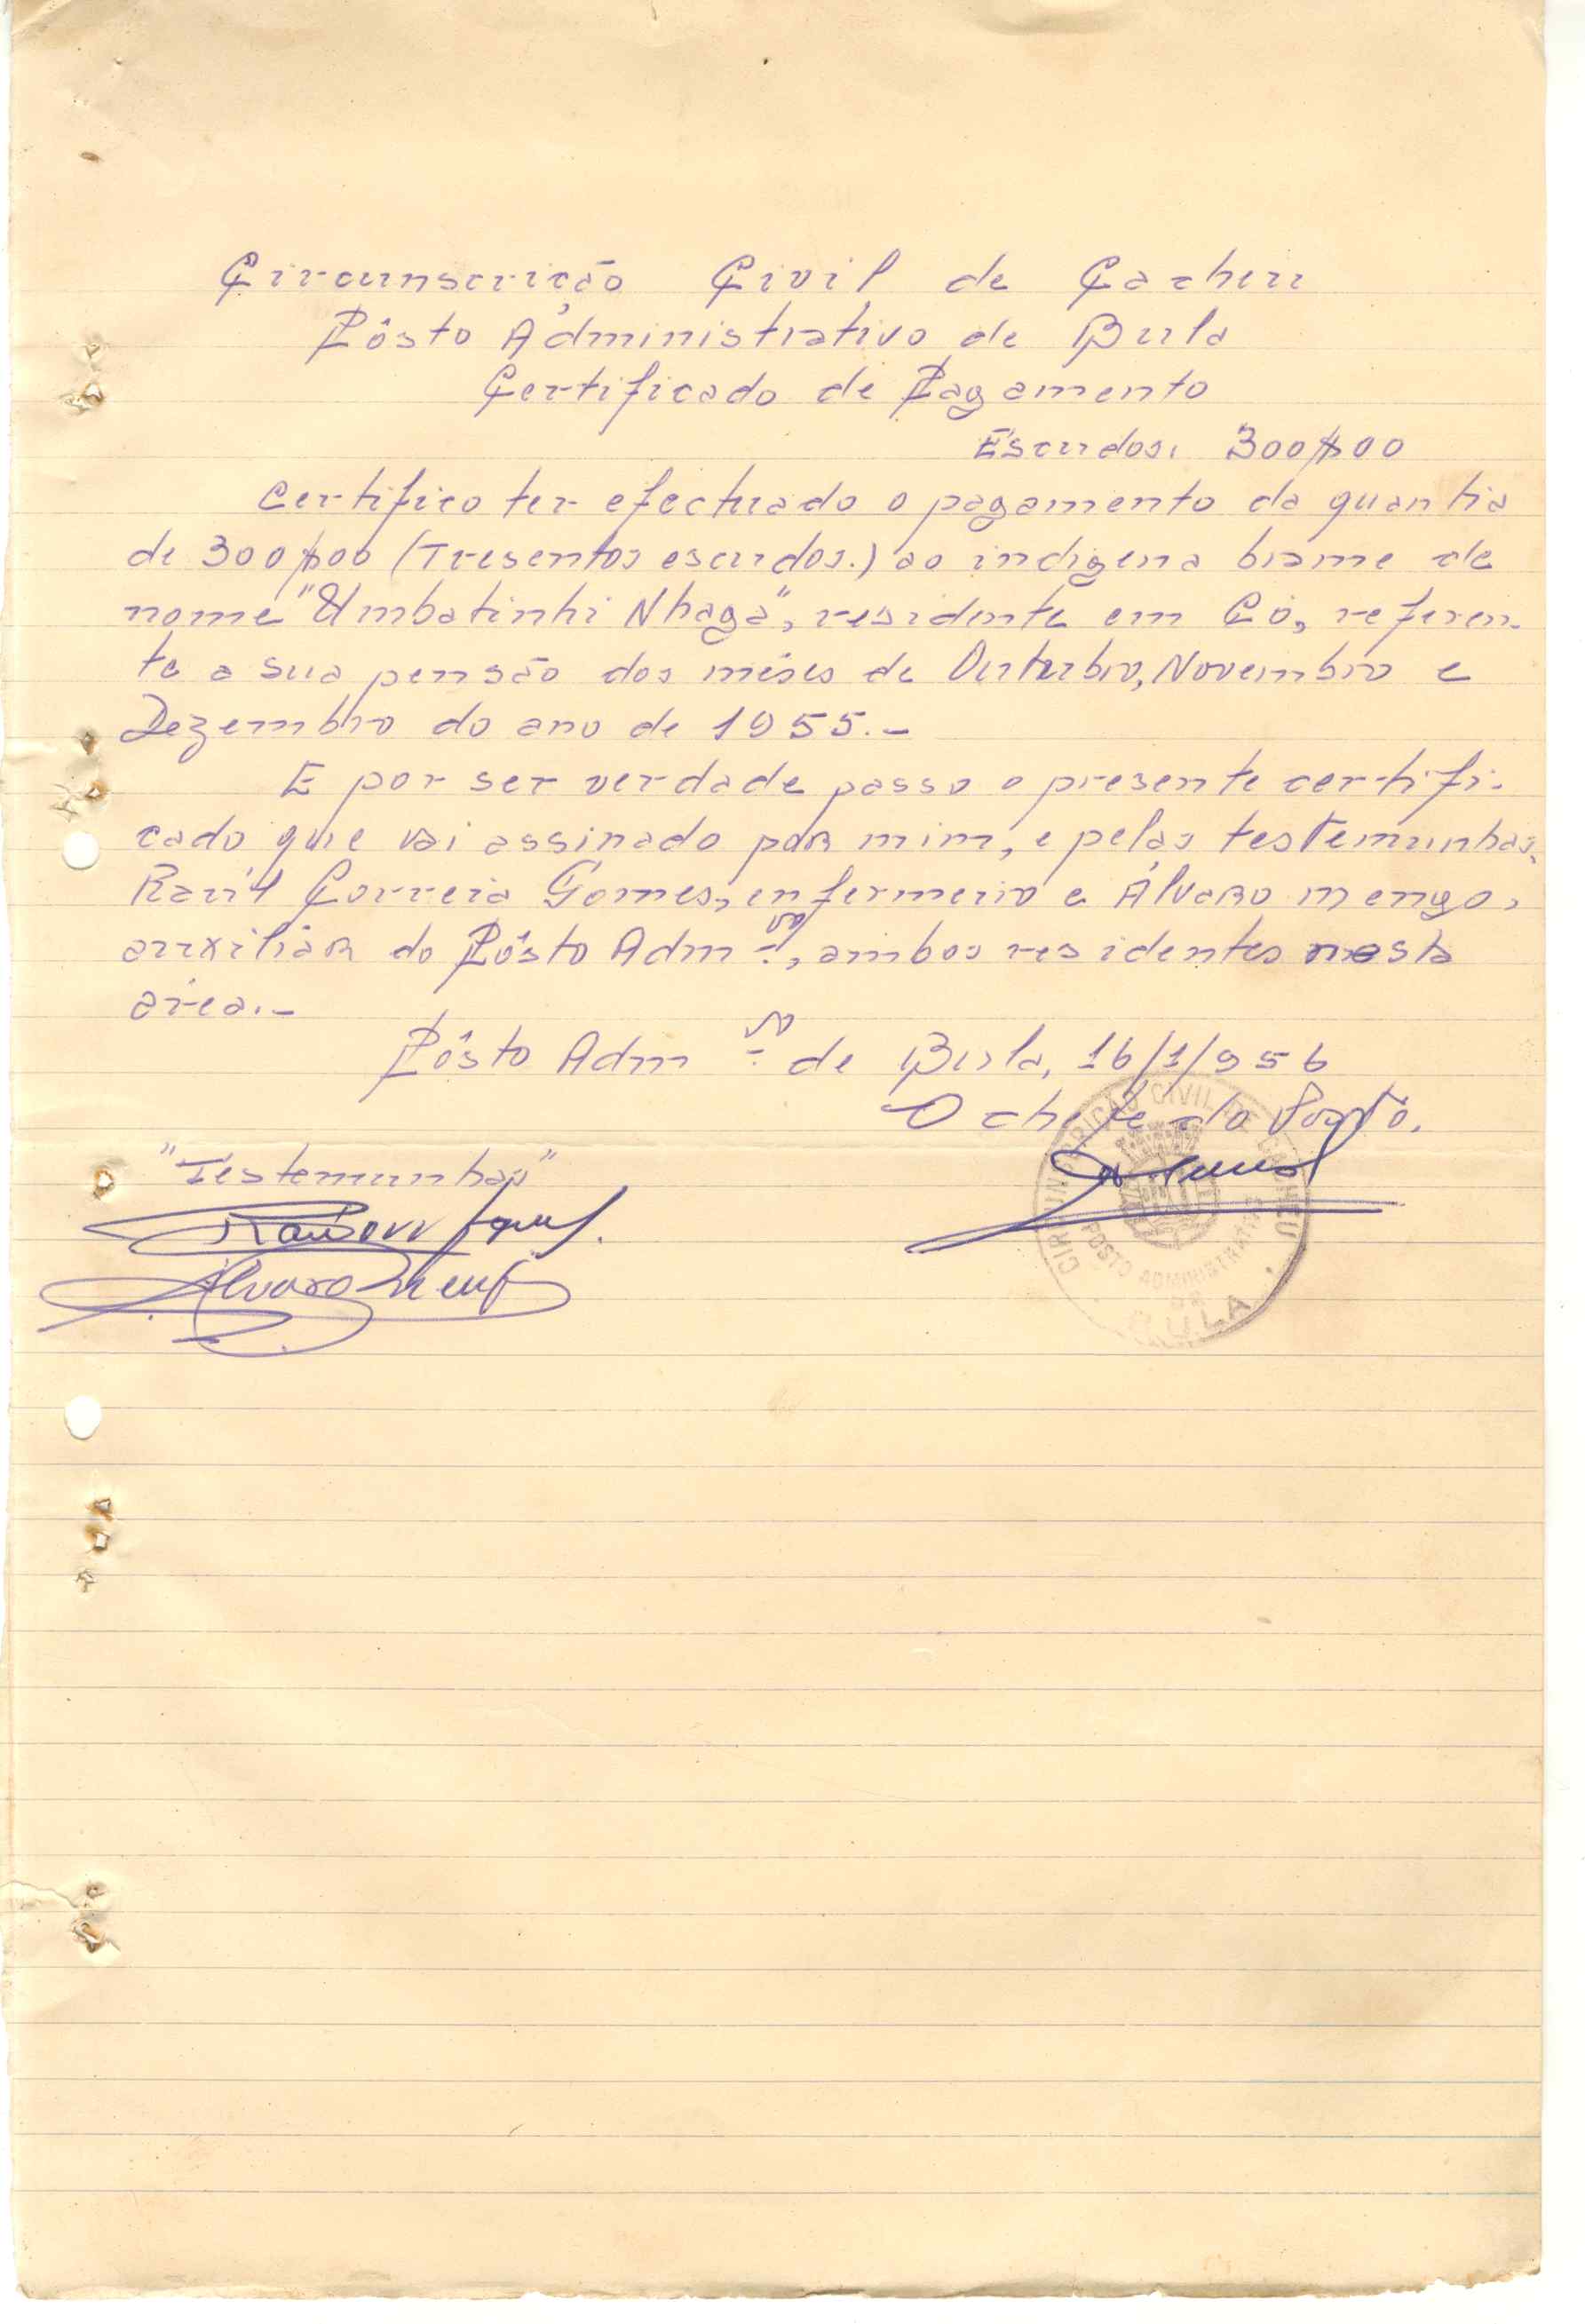 Circunscrição Civil de Cacheu
Pôsto Administrativo de Bula
Certificado de Pagamento
Escudos, 300$00
Certifico ter efectuado o pagamento da quantia
de 300$00 (Tresentos escudos.) ao indigena brame de
nome "Umbatinhi Nhaga", residente em Có, referen-
te a sua pensão dos mêses de Outubro, Novembro e
Dezembro do ano de 1955.-
E por ser verdade passo o presente certifi-
cado que vai assinado por mim, e pelas testemunhas,
Raúl Correia Gomes, enfermeiro e Álvaro Mengo,
auxiliar do Pôsto Admvo, ambos residentes nesta
área.-
Pôsto Admvo de Bula, 16/1/956
O chefe do Posto.
CIRCUNSCRIÇÃO CIVIL DE CACHEU
POSTO ADMINISTRATIVO
DE
BULA
"Testemunhas"